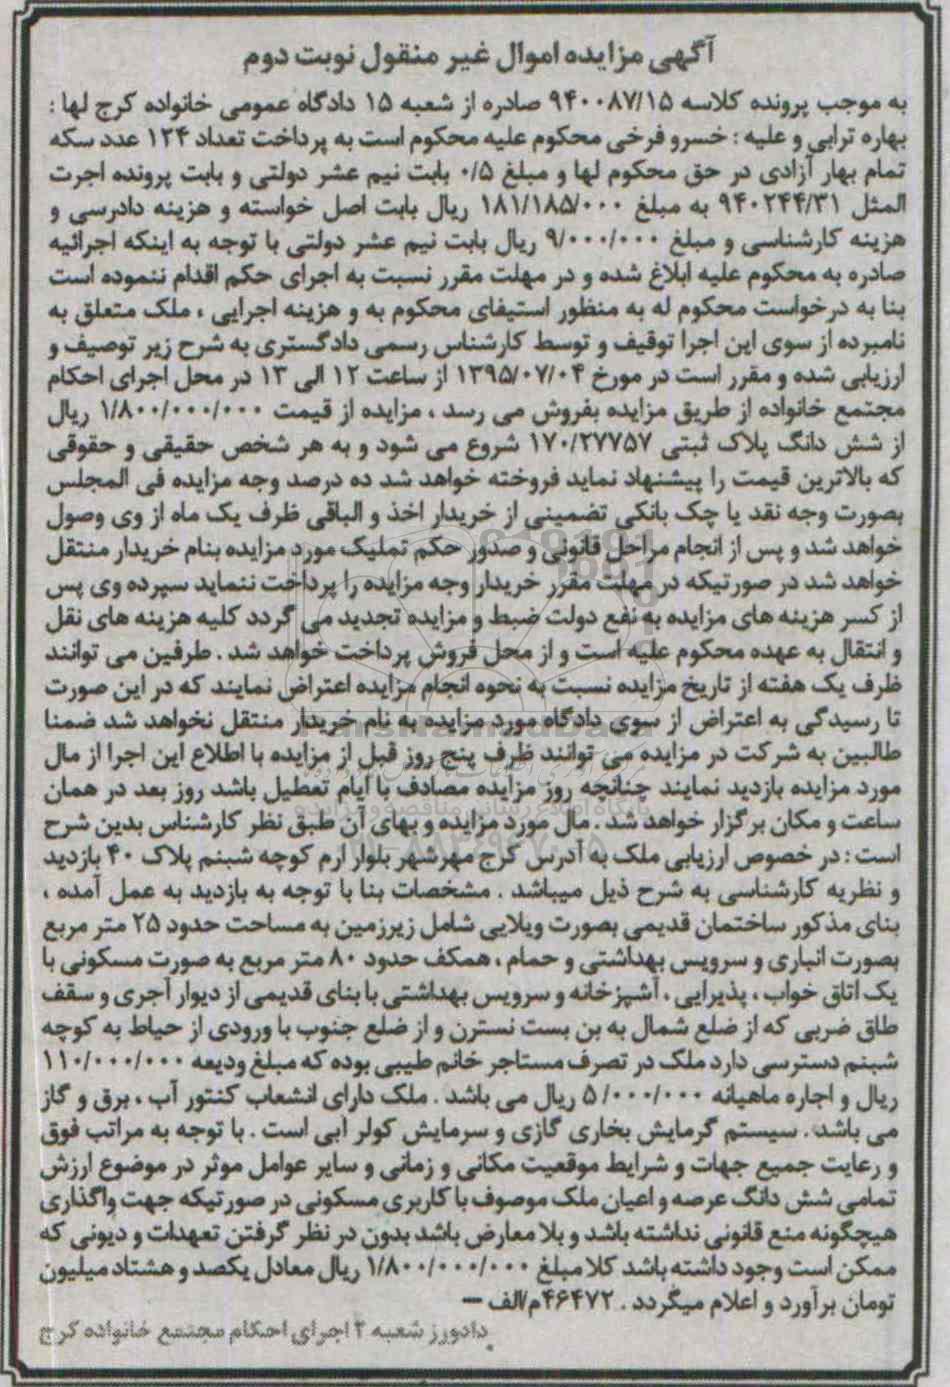 آگهی مزایده اموال غیر منقول نوبت دوم
به موجب پرونده کلاسه ۹۴۰۰۸۷/۱۵ صادره از شعبه ۱۵ دادگاه عمومی خانواده کرج لها :
بهاره ترابی و علیه : خسرو فرخی محکوم علیه محکوم است به پرداخت تعداد ۱۲۴ عدد سکه
تمام بهار آزادی در حق محکوم لها و مبلغ ۰/۵ بابت نیم عشر دولتی و بابت پرونده اجرت
المثل ۹۴۰۲۴۴/۳۱ به مبلغ ۱۸۱/۱۸۵/۰۰۰ ریال بابت اصل خواسته و هزینه دادرسی و
هزینه کارشناسی و مبلغ ۹/۰۰۰/۰۰۰ ریال بابت نیم عشر دولتی با توجه به اینکه اجرائیه
صادره به محکوم علیه ابلاغ شده و در مهلت مقرر نسبت به اجرای حکم اقدام ننموده است
بنا به درخواست محکوم له به منظور استیفای محکوم به و هزینه اجرایی ، ملک متعلق به
نامبرده از سوی این اجرا توقیف و توسط کارشناس رسمی دادگستری به شرح زیر توصیف و
ارزیابی شده و مقرر است در مورخ ۱۳۹۵/۰۷/۰۴ از ساعت ۱۲ الی ۱۳ در محل اجرای احکام
مجتمع خانواده از طریق مزایده بفروش می رسد ، مزایده از قیمت ۱/۸۰۰/۰۰۰/۰۰۰ ریال
از شش دانگ پلاک ثبتی ۱۷۰/۲۷۷۵۷ شروع می شود و به هر شخص حقیقی و حقوقی
که بالاترین قیمت را پیشنهاد نماید فروخته خواهد شد ده درصد وجه مزایده فی المجلس
بصورت وجه نقد یا چک بانکی تضمینی از خریدار اخذ و الباقی ظرف یک ماه از وی وصول
خواهد شد و پس از انجام مراحل قانونی و صدور حکم تملیک مورد مزایده بنام خریدار منتقل
خواهد شد در صورتیکه در مهلت مقرر خریدار وجه مزایده را پرداخت ننماید سپرده وی پس
از کسر هزینه های مزایده به نفع دولت ضبط و مزایده تجدید می گردد کلیه هزینه های نقل
و انتقال به عهده محکوم علیه است و از محل فروش پرداخت خواهد شد . طرفین می توانند
ظرف یک هفته از تاریخ مزایده نسبت به نحوه انجام مزایده اعتراض نمایند که در این صورت
تا رسیدگی به اعتراض از سوی دادگاه مورد مزایده به نام خریدار منتقل نخواهد شد ضمنا
طالبین به شرکت در مزایده می توانند ظرف پنج روز قبل از مزایده با اطلاع این اجرا از مال
مورد مزایده بازدید نمایند چنانچه روز مزایده مصادف با ایام تعطیل باشد روز بعد در همان
ساعت و مکان برگزار خواهد شد . مال مورد مزایده و بهای آن طبق نظر کارشناس بدین شرح
است : در خصوص ارزیابی ملک به آدرس کرج مهرشهر بلوار ارم کوچه شبنم پلاک ۴۰ بازدید
و نظریه کارشناسی به شرح ذیل میباشد . مشخصات بنا با توجه به بازدید به عمل آمده ،
بنای مذکور ساختمان قدیمی بصورت ویلایی شامل زیرزمین به مساحت حدود ۲۵ متر مربع
بصورت انباری و سرویس بهداشتی و حمام ، همکف حدود ۸۰ متر مربع به صورت مسکونی با
یک اتاق خواب ، پذیرایی ، آشپزخانه و سرویس بهداشتی با بنای قدیمی از دیوار آجری و سقف
طاق ضربی که از ضلع شمال به بن بست نسترن و از ضلع جنوب با ورودی از حیاط به کوچه
شبنم دسترسی دارد ملک در تصرف مستاجر خانم طیبی بوده که مبلغ ودیعه ۱۱۰/۰۰۰/۰۰۰
ریال و اجاره ماهیانه ۵/۰۰۰/۰۰۰ ریال می باشد . ملک دارای انشعاب کنتور آب ، برق و گاز
می باشد . سیستم گرمایش بخاری گازی و سرمایش کولر آبی است . با توجه به مراتب فوق
و رعایت جمیع جهات و شرایط موقعیت مکانی و زمانی و سایر عوامل موثر در موضوع ارزش
تمامی شش دانگ عرصه و اعیان ملک موصوف با کاربری مسکونی در صورتیکه جهت واگذاری
هیچگونه منع قانونی نداشته باشد و بلا معارض باشد بدون در نظر گرفتن تعهدات و دیونی که
ممکن است وجود داشته باشد کلا مبلغ ۱/۸۰۰/۰۰۰/۰۰۰ ریال معادل یکصد و هشتاد میلیون
تومان برآورد و اعلام میگردد . ۴۶۴۷۲م/الف –
دادورز شعبه ۲ اجرای احکام مجتمع خانواده کرج